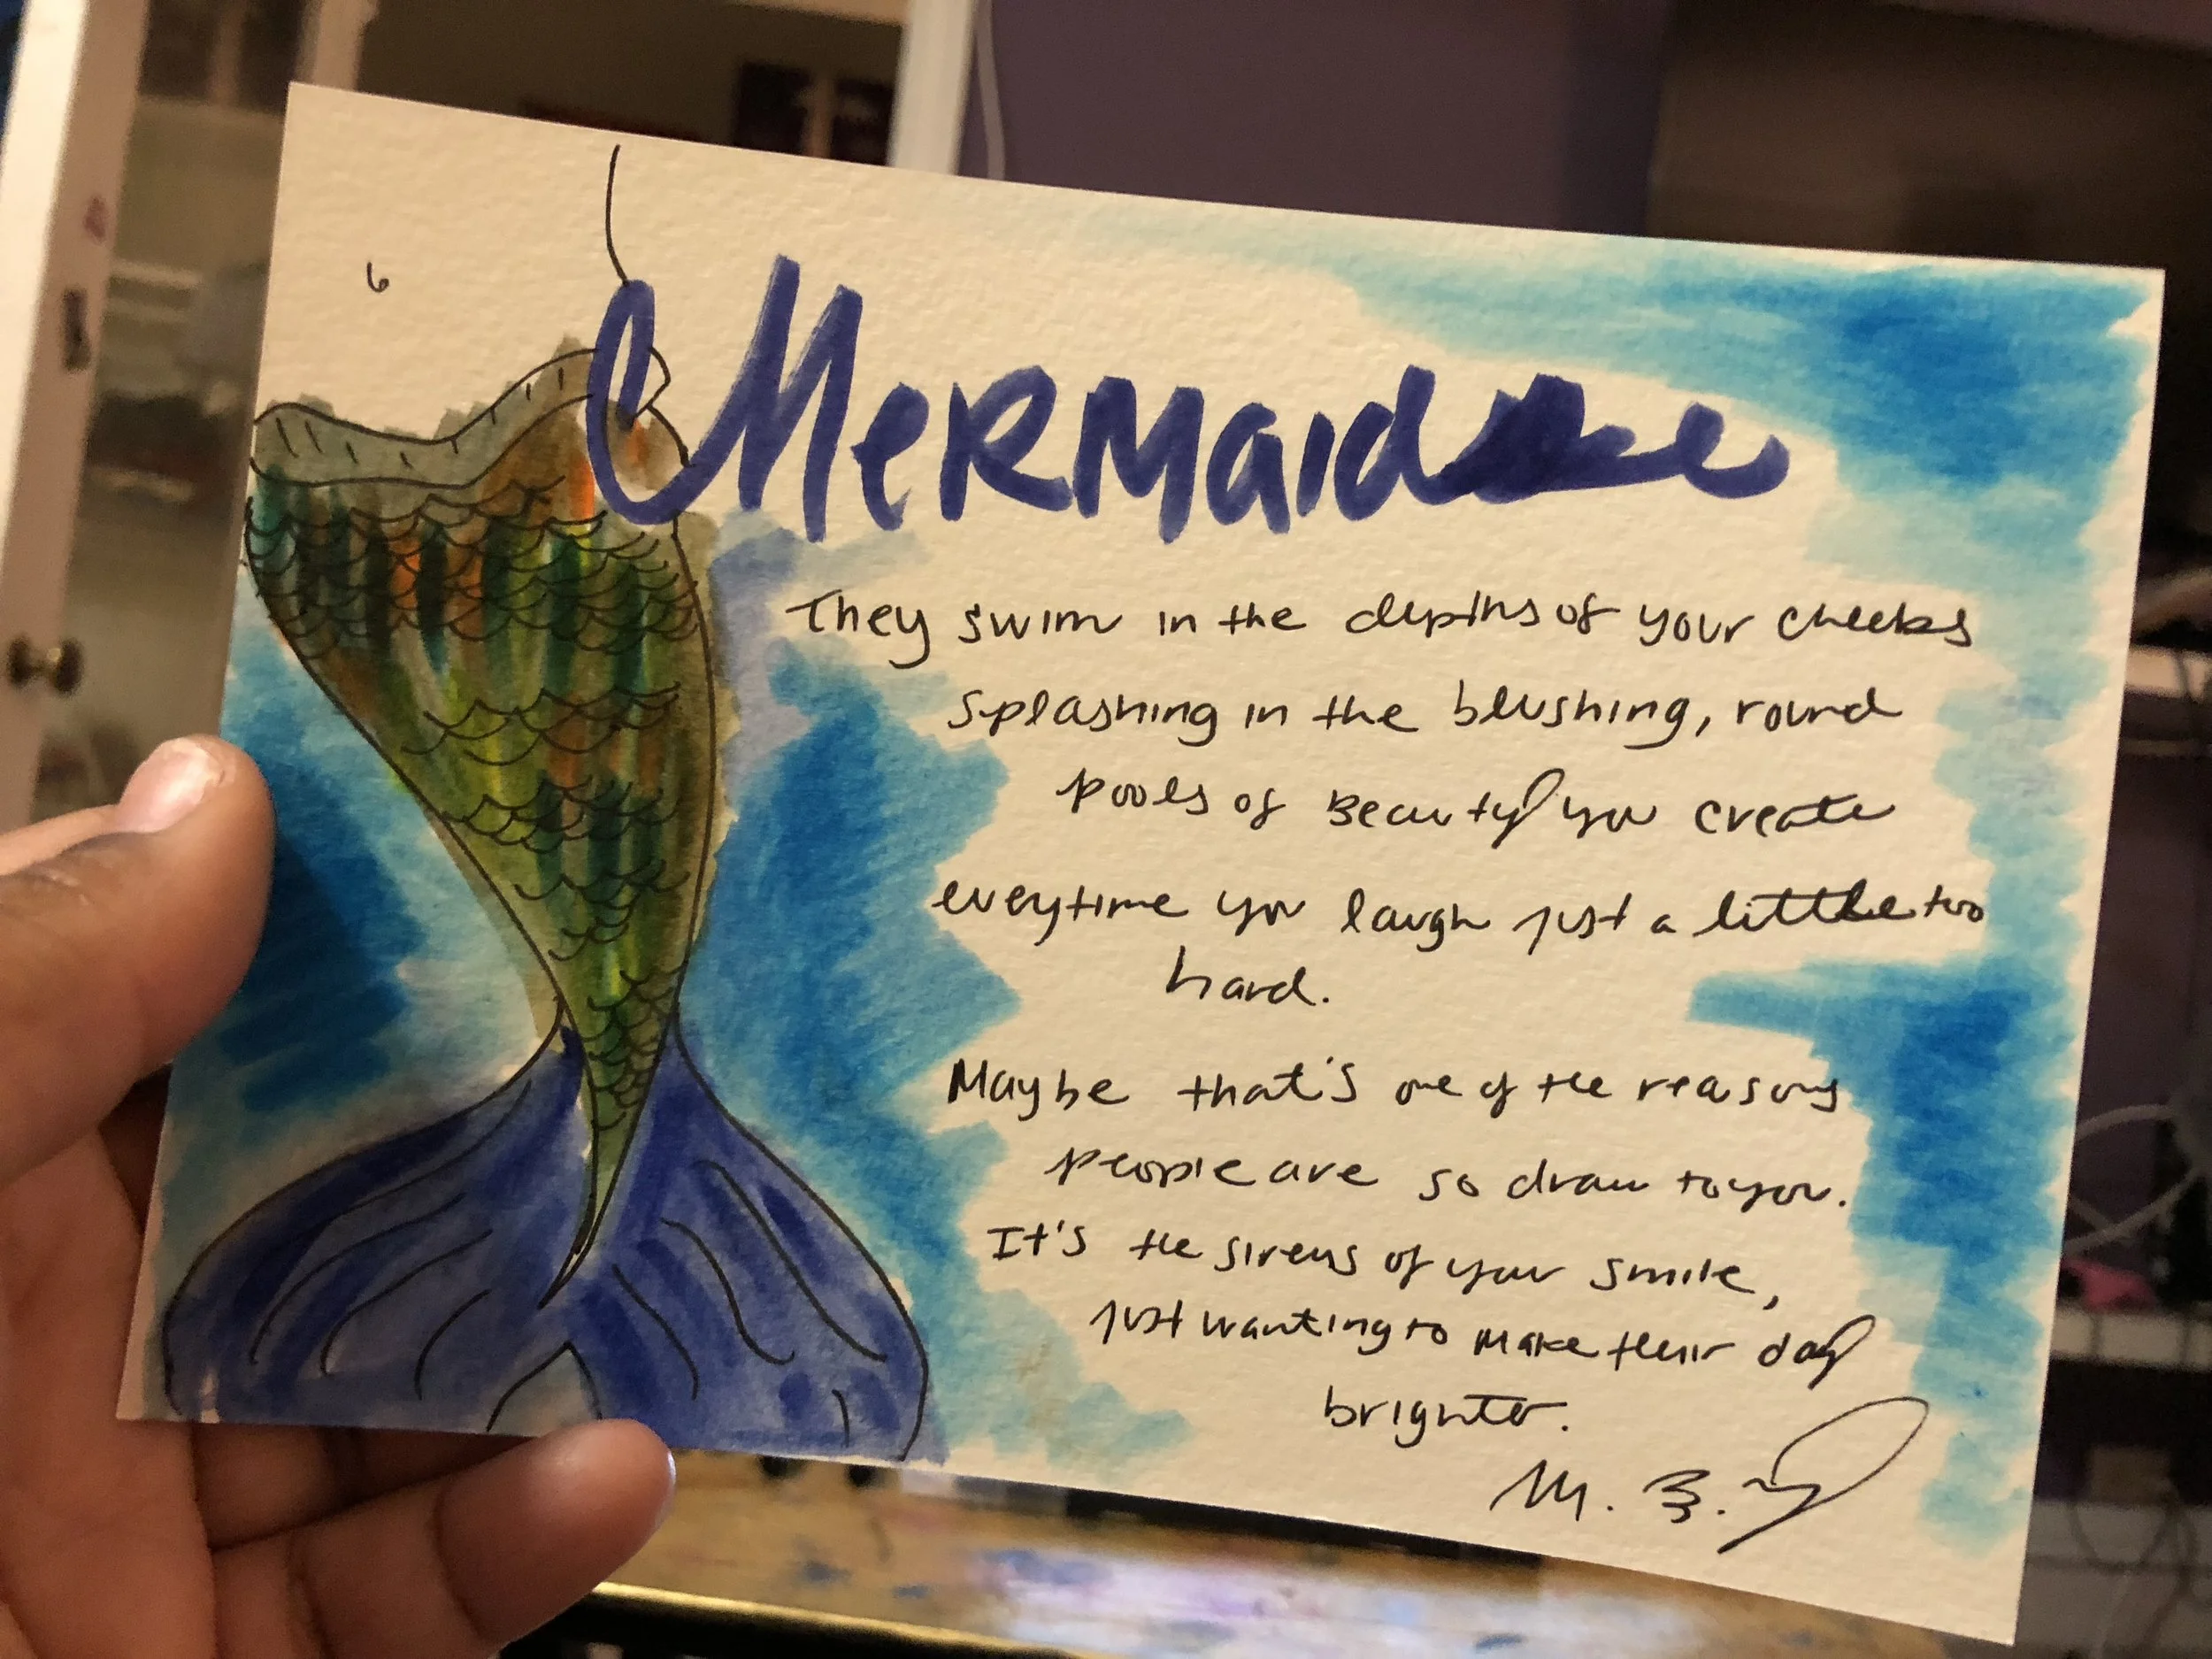 Mermaid
They swim in the depths of your cheeks
splashing in the blushing, round
pools of Beauty you create
everytime you laugh just a little too
hard.
Maybe that's one of the reasons
people are so draw to you.
It's the sirens of your smile,
just wanting to make their day
brighter.
M. B.